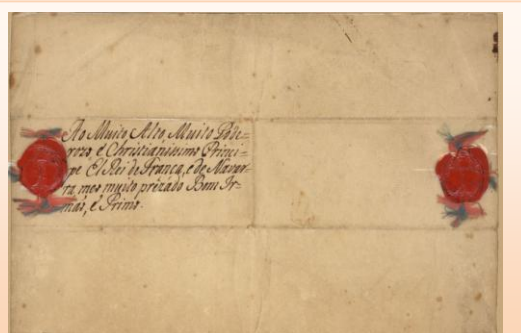 Ao Muito Alto, Muito Pode=
rozo, e Christianissimo Princi=
pe El Rei de França, e de Navar=
ra, meo muito prizado Bom Ir=
mão, e Primo.